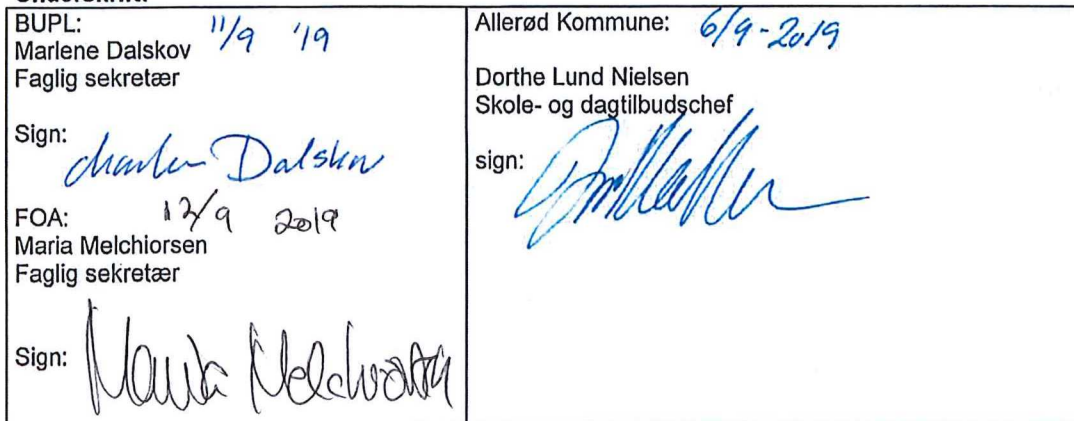 Underskrift:
BUPL: 11/9 '19
Marlene Dalskov
Faglig sekretær
Sign:
Marlene Dalskov
FOA: 12/9 2019
Maria Melchiorsen
Faglig sekretær
Sign: Maria Melchiorsen
Allerød Kommune: 6/9-2019
Dorthe Lund Nielsen
Skole- og dagtilbudschef
sign: